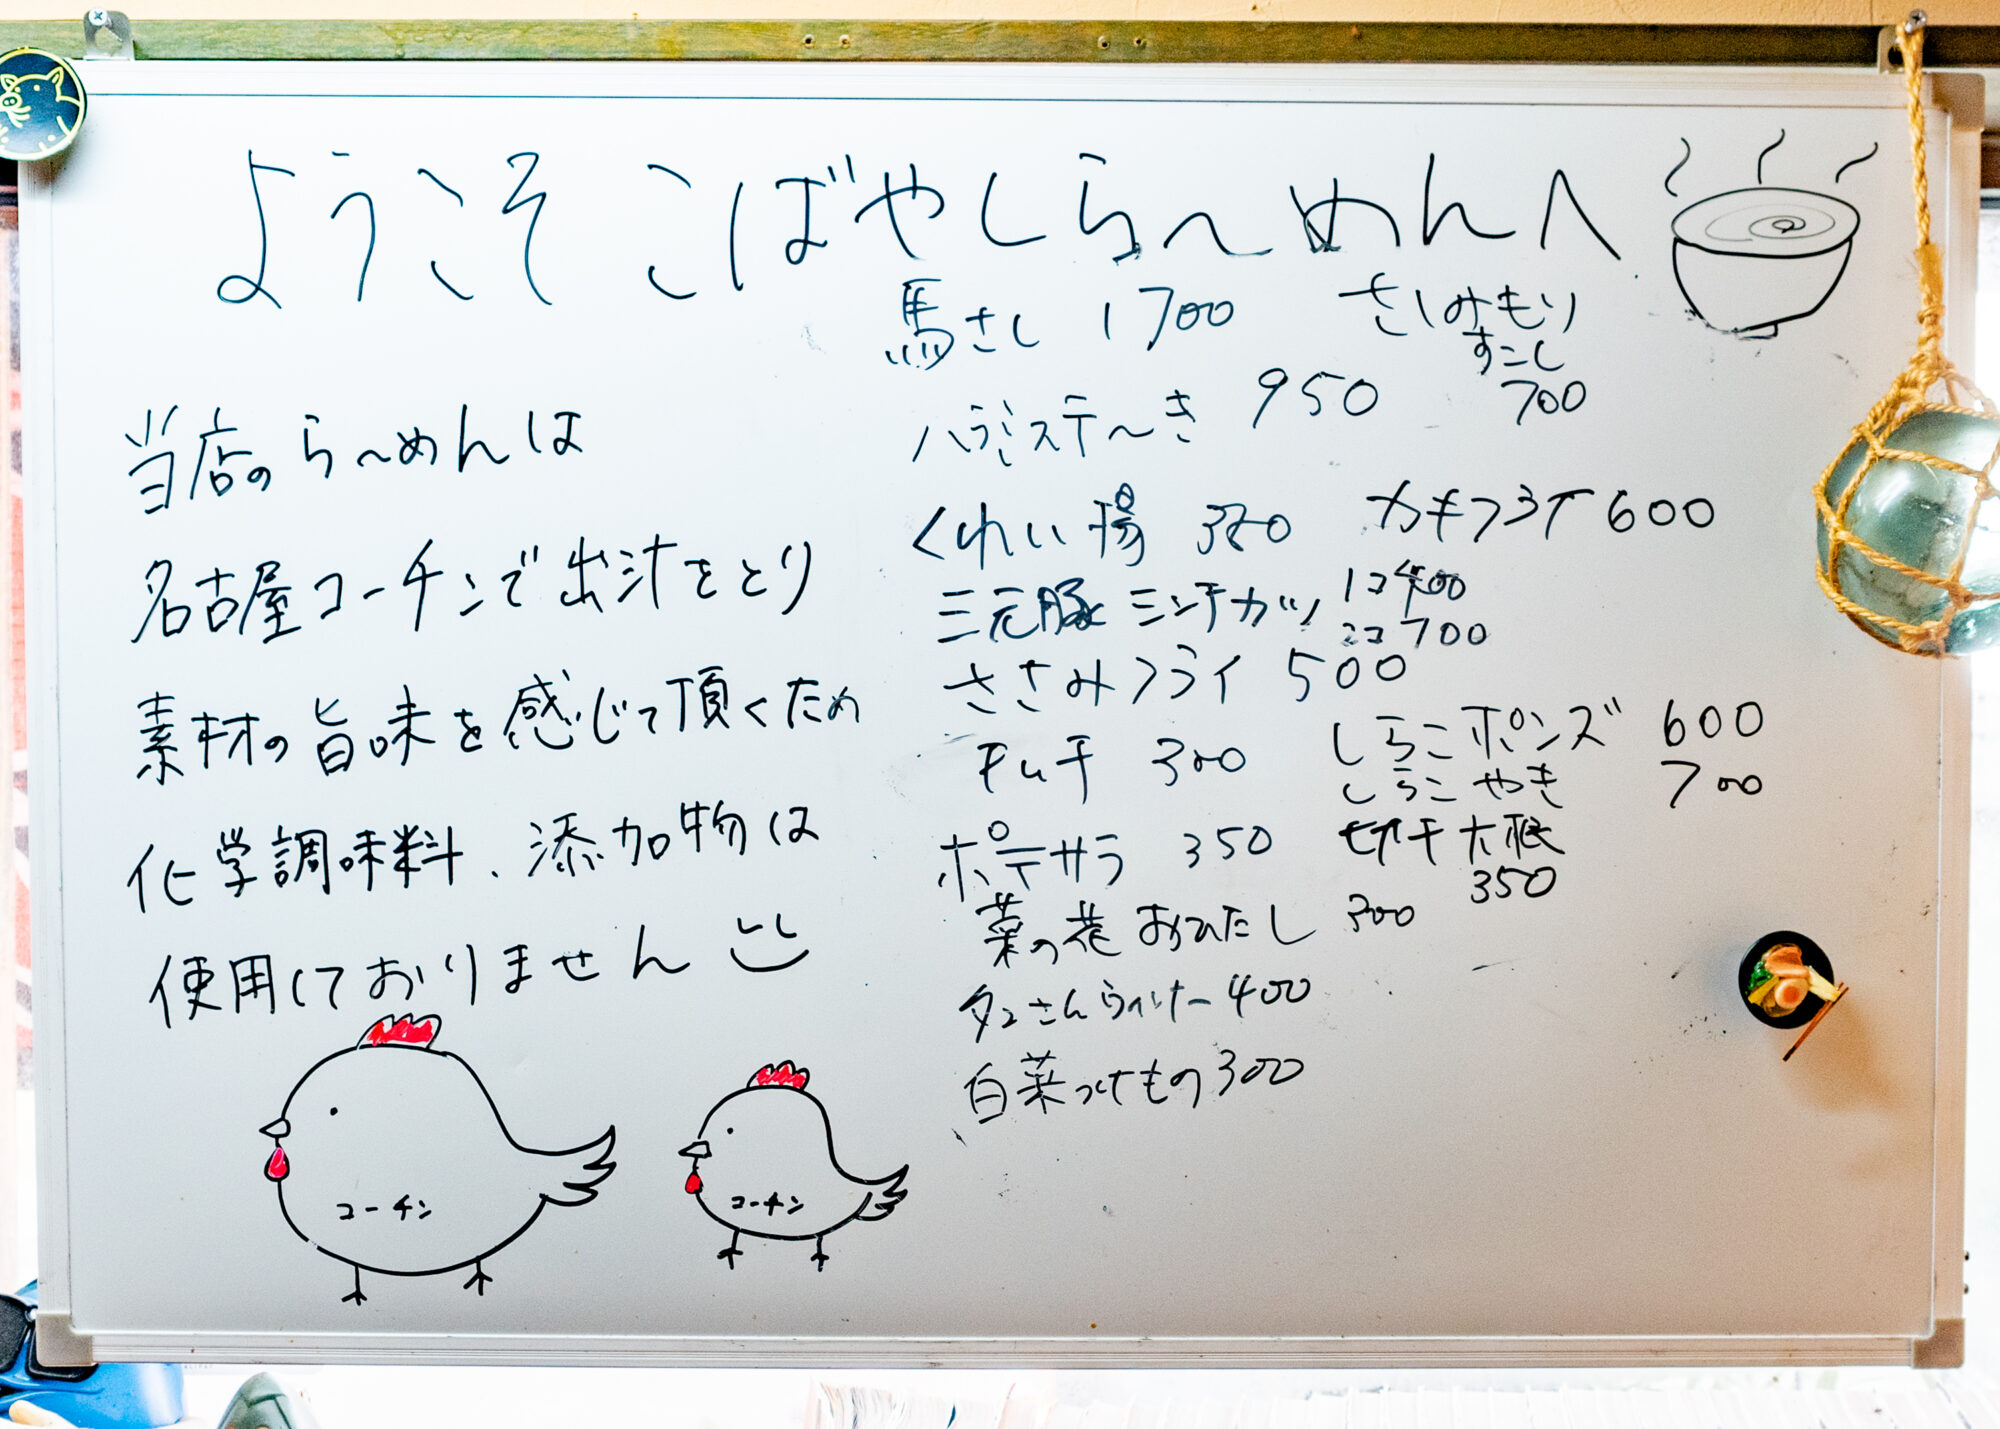 ようこそ こばやしら〜めんへ
当店のら〜めんは
名古屋コーチンで出汁をとり
素材の旨味を感じて頂くため
化学調味料、添加物は
使用しておりません
馬さし 1700
さしみもり
すこし
700
ハラミステ〜き 950
くわい揚 350
カキフライ 600
三元豚 ミンチカツ
1コ 400
2コ 700
ささみフライ 500
キムチ 300
しらこポンズ 600
しらこやき 700
ポテサラ 350
切干大根
350
菜の花 おひたし 300
タコさんウィンナー 400
白菜つけもの 300
コーチン
コーチン